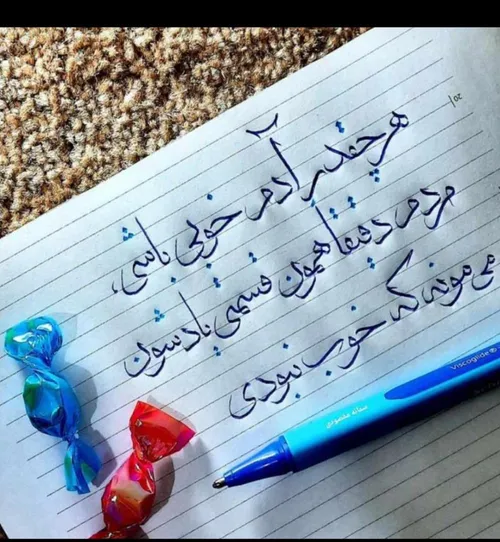 هر چقدر آدم خوبی باشی،
مردم دقیقا همون قسمتی یادشون
می مونه که خوب نبودی
Viscoglide®